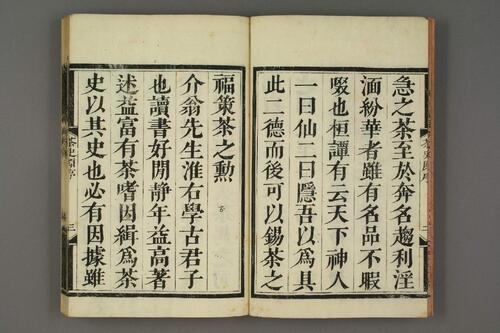 急之茶至於奔名趨利淫
湎紛華者雖有名品不暇
啜也桓譚有云天下神人
一曰仙二曰隱吾以爲具
此二德而後可以錫茶之
福策茶之勲
介翁先生淮右學古君子
也讀書好閒靜年益高著
述益富有茶嗜因緝爲茶
史以其史也必有因據雖
茶史序
三